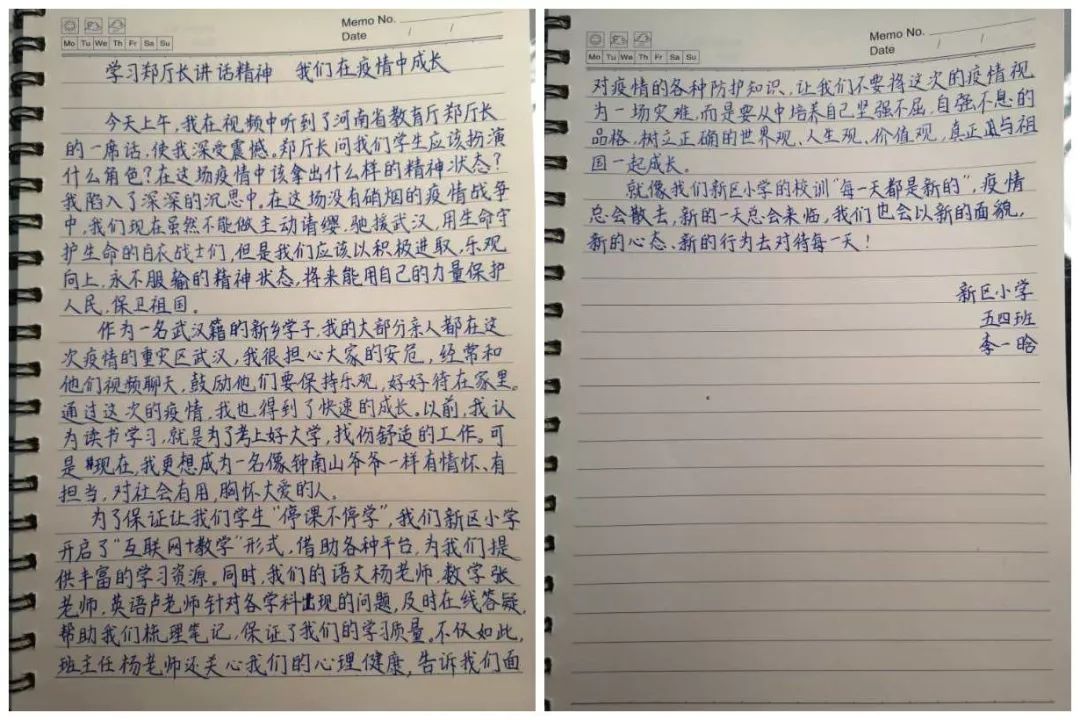 Memo No.
Date / /
Mo Tu We Th Fr Sa Su
学习郑厅长讲话精神 我们在疫情中成长
今天上午,我在视频中听到了河南省教育厅郑厅长
的一席话,使我深受震憾。郑厅长问我们学生应该扮演
什么角色?在这场疫情中该拿出什么样的精神状态?
我陷入了深深的沉思中。在这场没有硝烟的疫情战争
中,我们现在虽然不能做主动请缨,驰援武汉,用生命守
护生命的白衣战士们,但是我们应该以积极进取,乐观
向上,永不服输的精神状态,将来能用自己的力量保护
人民,保卫祖国。
作为一名武汉籍的新乡学子,我的大部分亲人都在这
次疫情的重灾区武汉,我很担心大家的安危,经常和
他们视频聊天,鼓励他们要保持乐观,好好待在家里。
通过这次的疫情,我也得到了快速的成长。以前,我认
为读书学习,就是为了考上好大学,找份舒适的工作。可
是现在,我更想成为一名像钟南山爷爷一样有情怀、有
担当,对社会有用,胸怀大爱的人。
为了保证让我们学生“停课不停学”,我们新区小学
开启了“互联网+教学”形式,借助各种平台,为我们提
供丰富的学习资源。同时,我们的语文杨老师,数学张
老师,英语卢老师针对各学科出现的问题,及时在线答疑,
帮助我们梳理笔记,保证了我们的学习质量。不仅如此,
班主任杨老师还关心我们的心理健康,告诉我们面
Memo No.
Date / /
Mo Tu We Th Fr Sa Su
对疫情的各种防护知识,让我们不要将这次的疫情视
为一场灾难,而是要从中培养自己坚强不屈,自强不息的
品格,树立正确的世界观、人生观、价值观,真正与祖
国一起成长。
就像我们新区小学的校训“每一天都是新的”,疫情
总会散去,新的一天总会来临,我们也会以新的面貌,
新的心态、新的行为去对待每一天!
新区小学
五四班
李一晗